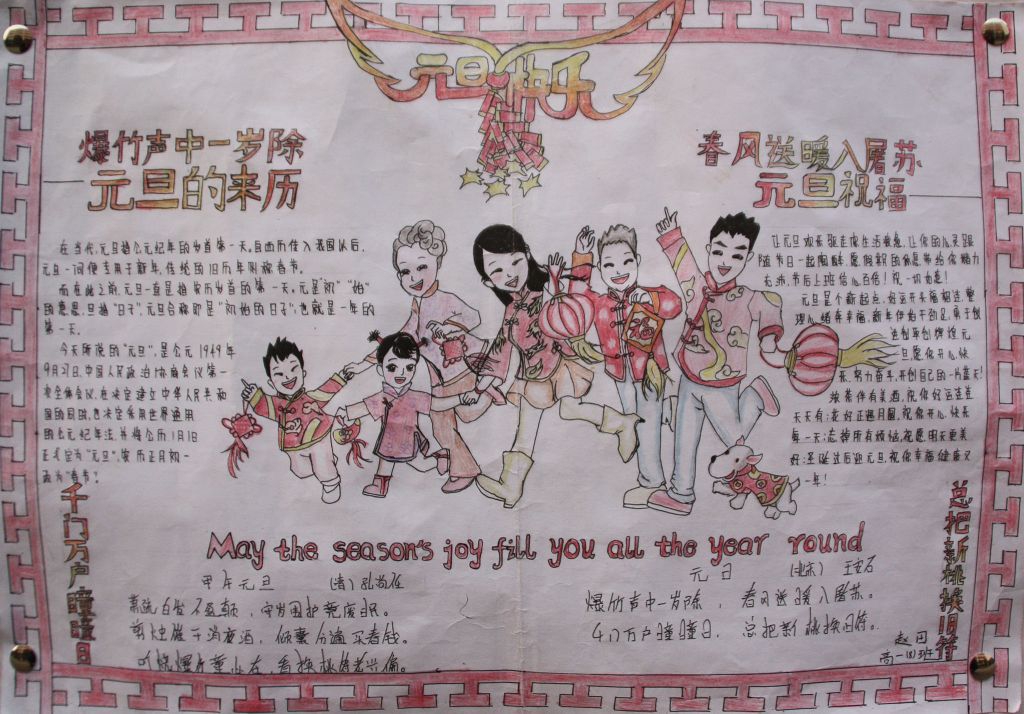 元旦快乐
爆竹声中一岁除
元旦的来历
在当代,元旦指公元纪年的岁首第一天,自西历传入我国以后,
元旦一词便专用于新年,传统的旧历年则称春节。
而在此之前,元旦一直是指农历岁首的第一天。元是"初""始"
的意思,旦指"日子",元旦合称即是"初始的日子",也就是一年的
第一天。
今天所说的"元旦",是公元1949年
9月27日,中国人民政治协商会议第一
次全体会议,在决定建立中华人民共和
国的同时,也决定采用世界通用
的公元纪年法,并将公历1月1日
正式定为"元旦",农历正月初一
改为"春节"。
春风送暖入屠苏
元旦祝福
让元旦欢乐驱走你生活疲惫,让你的心灵跟
随节日一起陶醉,愿假期的休息带给你精力
无沛,节后上班信心百倍!祝一切如意!
元旦是个新起点,好运开头福相连,整
理心绪奔幸福,新年伊始干劲足,勇于创
造创辉煌,元
旦愿你开心快
乐,努力奋斗,开创自己的一片蓝天!
天天有;花好正遇月圆,祝你开心,快乐
每一天;忘掉所有烦恼,祝愿明天更美
好;圣诞过后迎元旦,祝你幸福健康又
一年!
千门万户曈曈日
总把新桃换旧符
May the season's joy fill you all the year round
甲午元旦 (清)孔尚任
萧疏白发不盈颠,守岁围炉竟废眠。
剪烛催干消夜酒,倾囊分遍买春钱。
听烧爆竹童心在,看换桃符老兴偏。
元日 (北宋) 王安石
爆竹声中一岁除,春风送暖入屠苏。
千门万户曈曈日,总把新桃换旧符。
赵丹
高一(8)班